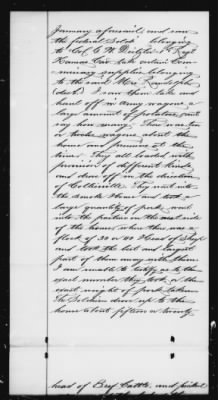 January afoursaid and saw
the federal Soldiers belonging
to Col. G W Deitzler 1st Regt
Kansas Vols take certain Com-
missary supplies belonging
to the said Mrs
(decd). I saw them take and
haul off in Army wagons a
large amount of potatoes, cant
say how many. There was ten
or twelve wagons about the
house and premises at the
time. They all loaded with
provisions of different kinds
and drove off in the direction
of They went into
the smoke House and took a
large quantity of pork, went
into the pasture on the west side
of the house where there was a
flock of 30 or 40 Head of Sheep
and took the best and largest
part of them away with them
I am unable to testify as to the
exact number they took or the
exact weight of pork taken
The Soldiers drove up to the
house about fifteen or twenty
head of Beef Cattle, and